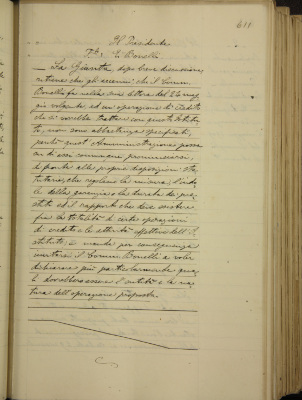 611
Il Presidente
F.to E. Bonelli
La Giunta, dopo breve discussione,
ritiene che gli accenni che il Comm.
Bonelli fa nella sua lettera del 26 mag
gio volgente ad un'operazione di credito
che si vorrebbe trattare con questo Istitu
to, non sono abbastanza specificati,
perchè quest'Amministrazione possa
su di essi comunque pronunciarsi,
di fronte alle proprie disposizioni sta
tutarie, che regolano la misura, l'indo
le delle garanzie e la durata dei pre
stiti ed il rapporto che deve esistere
fra la totalità di certe operazioni
di credito e le attività effettive dell'I
stituto; e manda per conseguenza
invitarsi il Comm. Bonelli a voler
dichiarare più particolarmente qua
le dovrebbe essere l'entità e la na
tura dell'operazione proposta.